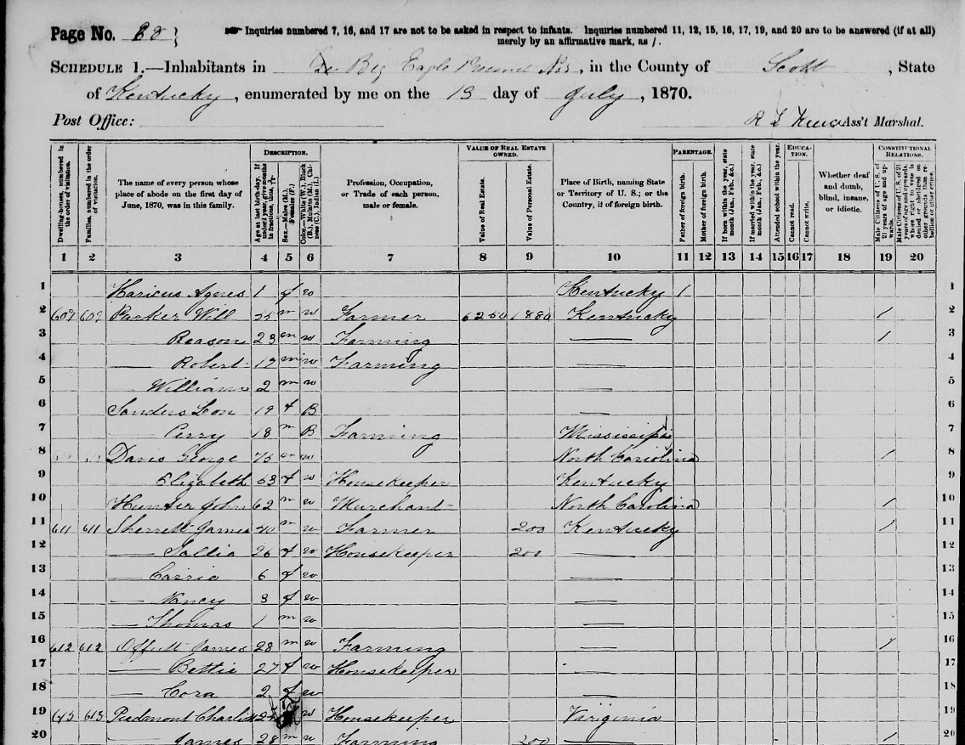 Page No. 88
Inquiries numbered 7, 16, and 17 are not to be asked in respect to infants. Inquiries numbered 11, 12, 15, 16, 17, 19, and 20 are to be answered (if at all)
merely by an affirmative mark, as /.
SCHEDULE 1.—Inhabitants in Big Eagle, in the County of Scott, State
of Kentucky, enumerated by me on the 13 day of July, 1870.
Post Office: Ass't Marshal.
DESCRIPTION. VALUE OF REAL ESTATE OWNED. PARENTAGE. EDUCATION. CONSTITUTIONAL RELATIONS.
Dwelling-houses, numbered in the order of visitation.
Families, numbered in the order of visitation.
The name of every person whose place of abode on the first day of June, 1870, was in this family.
Age at last birth-day. If under 1 year, give months in fractions, thus,
Sex.—Males (M.), Females (F.)
Color.—White (W.), Black (B.), Mulatto (M.), Chinese (C.), Indian (I.)
Profession, Occupation, or Trade of each person, male or female.
Value of Real Estate.
Value of Personal Estate.
Place of Birth, naming State or Territory of U. S.; or the Country, if of foreign birth.
Father of foreign birth.
Mother of foreign birth.
If born within the year, state month (Jan., Feb., &c.)
If married within the year, state month (Jan., Feb., &c.)
Attended school within the year.
Cannot read.
Cannot write.
Whether deaf and dumb, blind, insane, or idiotic.
Male Citizens of U. S. of 21 years of age and upwards.
1 2 3 4 5 6 7 8 9 10 11 12 13 14 15 16 17 18 19 20
1 Agnes 1 f w Kentucky / 1
2 609 609 Parker Will 25 m w Farmer 6250 1880 Kentucky / 2
3 Reason 23 m w Farming — / 3
4 — Robert 17 m w Farming — 4
5 — William 2 m w — 5
6 Sanders 19 f B — 6
7 — Perry 18 m B Farming Mississippi 7
8 Davis George 75 m w North Carolina / 8
9 Elizabeth 63 f w Housekeeper Kentucky 9
10 Hunter John 62 m w Merchant North Carolina / 10
11 611 611 Sherrett James 40 m w Farmer 200 Kentucky / 11
12 — Sallie 26 f w Housekeeper 200 — 12
13 — Carrie 6 f w — 13
14 — Nancy 3 f w — 14
15 — Thomas 1 m w — 15
16 612 612 Offutt James 28 m w Farming — / 16
17 — Bettie 27 f w Housekeeper — 17
18 — Cora 2 f w — 18
19 613 613 Piedmont w Housekeeper Virginia 19
20 — James 28 m w Farming 200 — / 20